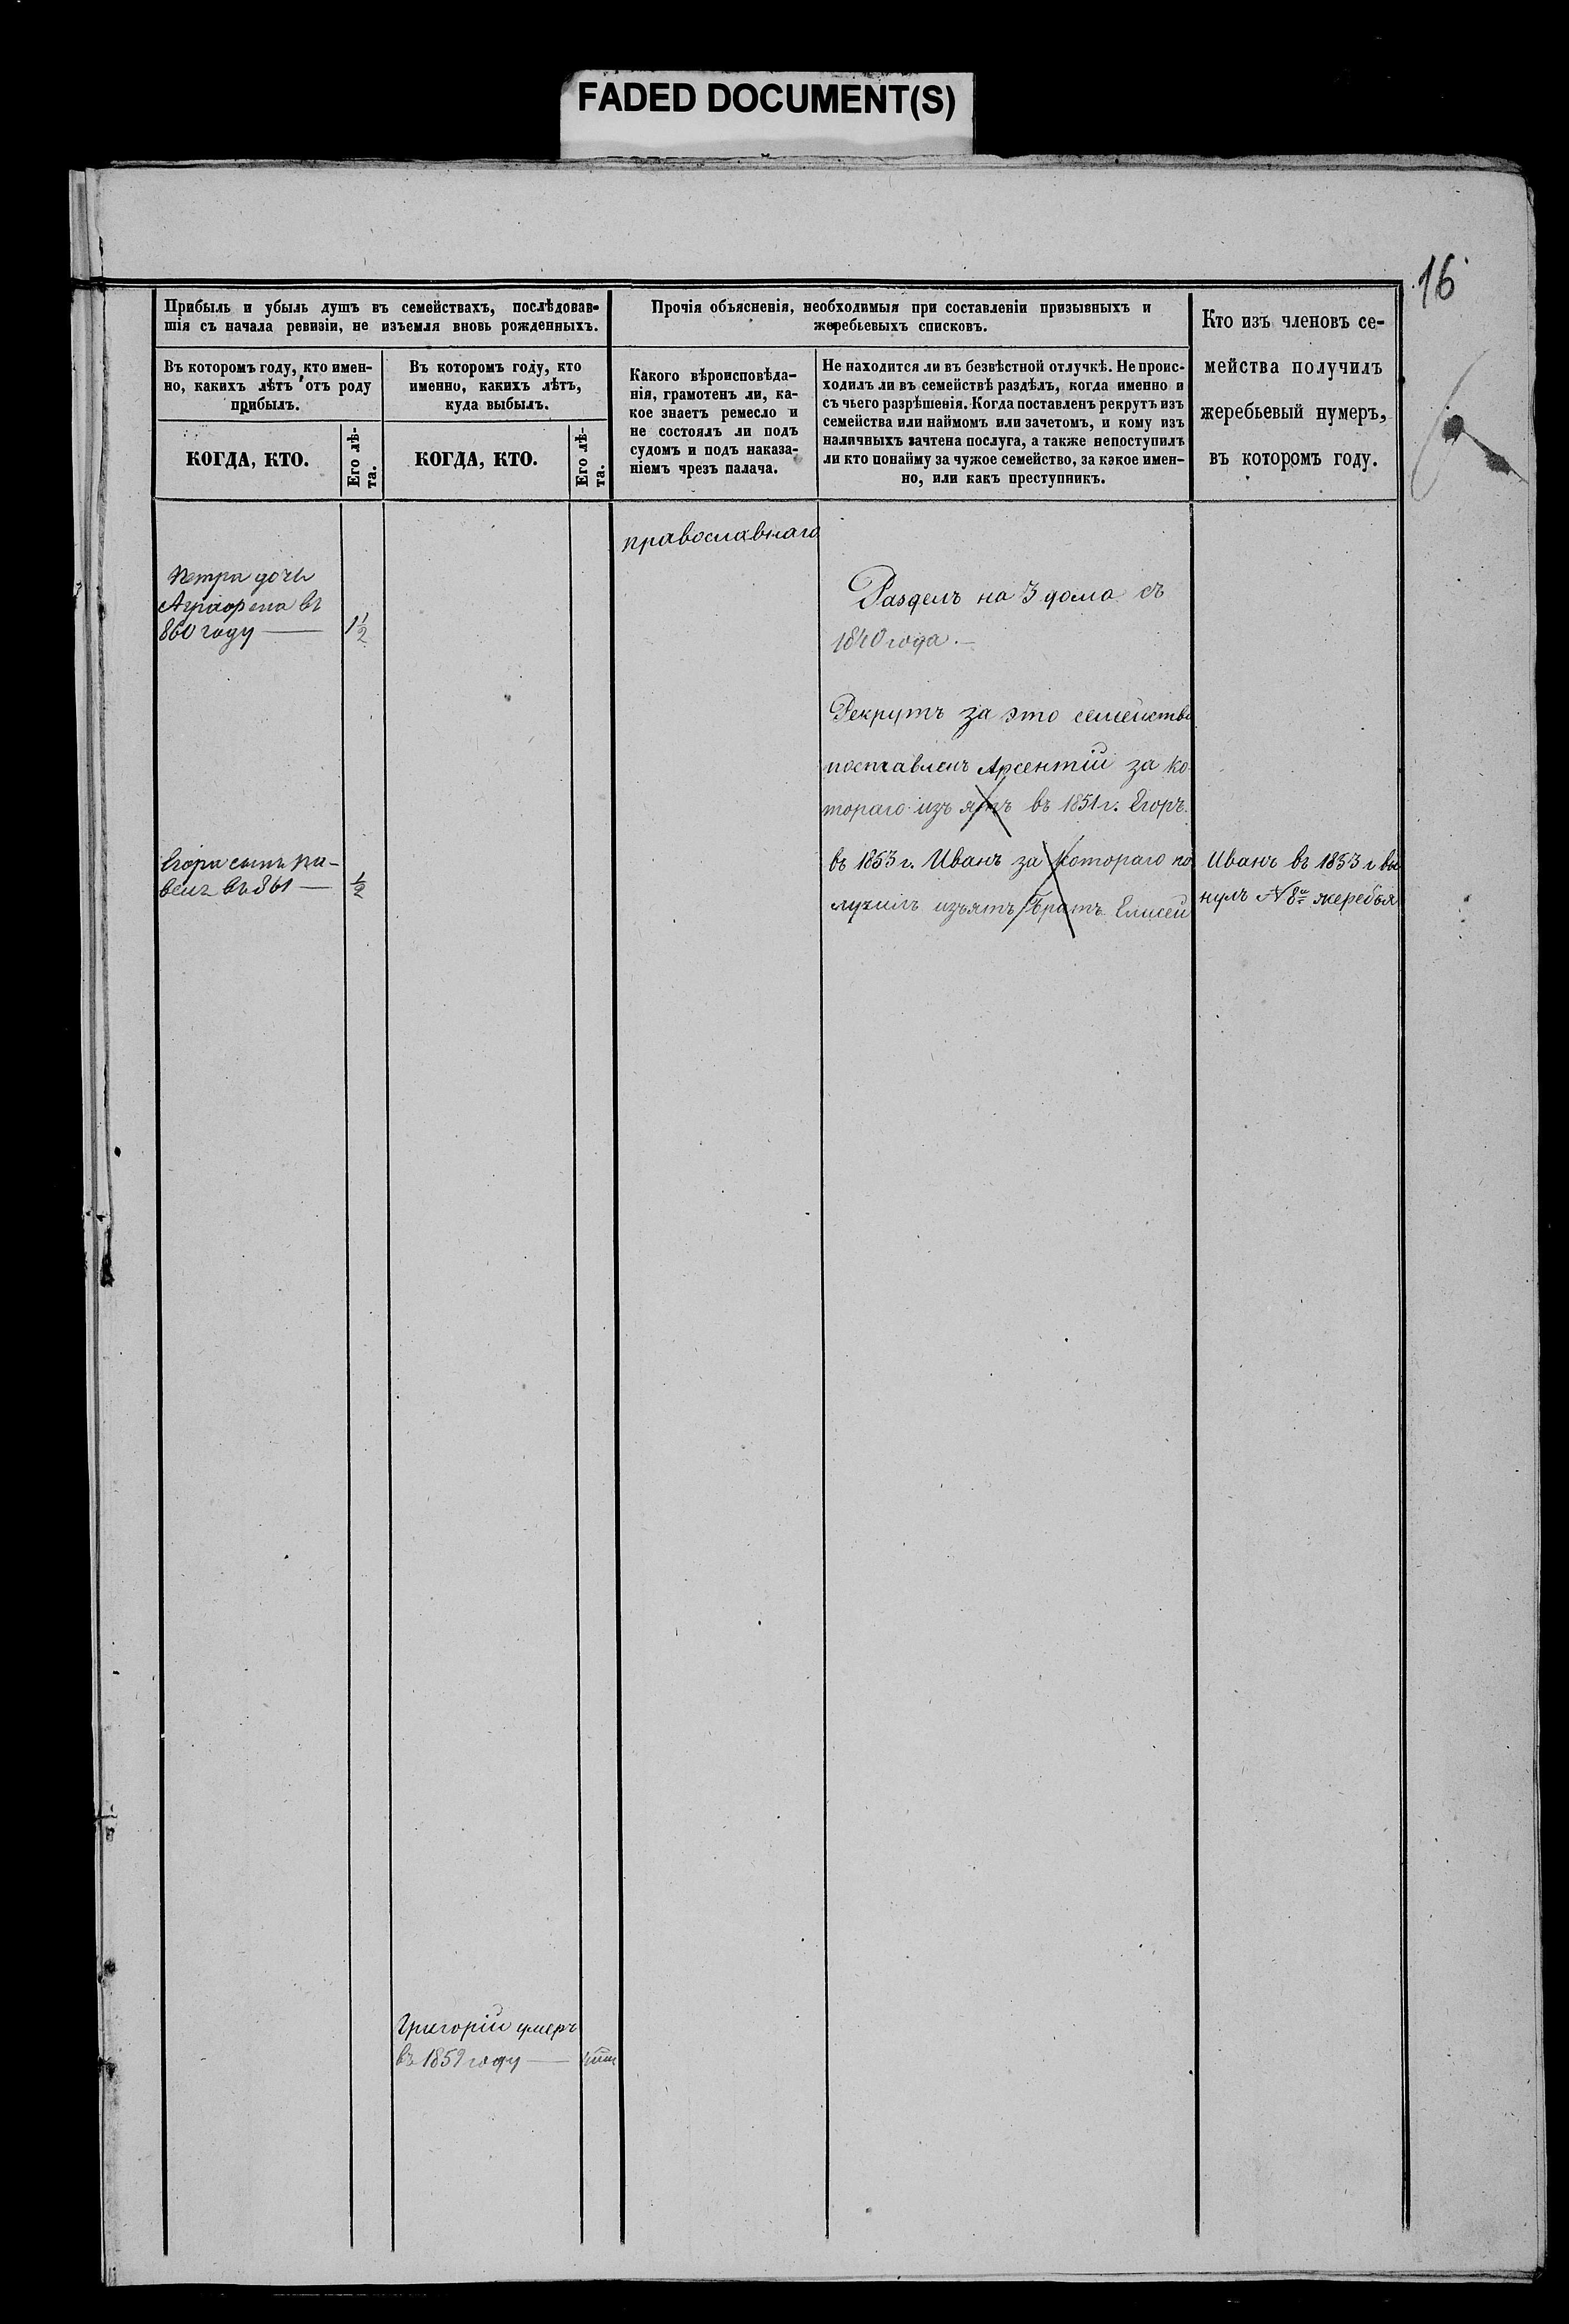 FADED DOCUMENT(S)
16
Прибыль и убыль душъ въ семействахъ, послѣдовав-
шія съ начала ревизіи, не изъемля вновь рожденныхъ.
Въ которомъ году, кто имен-
но, какихъ лѣтъ отъ роду
прибылъ.
КОГДА, КТО.
Его лѣ-
та.
Въ которомъ году, кто
именно, какихъ лѣтъ,
куда выбылъ.
КОГДА, КТО.
Его лѣ-
та.
Прочія объясненія, необходимыя при составленіи призывныхъ и
жеребьевыхъ списковъ.
Какого вѣроисповѣда-
нія, грамотенъ ли, ка-
кое знаетъ ремесло и
не состоялъ ли подъ
судомъ и подъ наказа-
ніемъ чрезъ палача.
Не находится ли въ безвѣстной отлучкѣ. Не проис-
ходилъ ли въ семействѣ раздѣлъ, когда именно и
съ чьего разрѣшенія. Когда поставленъ рекрутъ изъ
семейства или наймомъ или зачетомъ, и кому изъ
наличныхъ зачтена послуга, а также непоступилъ
ли кто понайму за чужое семейство, за какое имен-
но, или какъ преступникъ.
Кто изъ членовъ се-
мейства получилъ
жеребьевый нумеръ,
въ которомъ году.
православнаго
Петра дочь
Аграфена въ
860 году — 1½
Раздѣлъ на 3 дома съ
1840 года. —
Рекрутъ за это семейство
поставленъ Арсентій за ко
тораго изъятъ въ 1851 г. Егоръ.
Егора сынъ Па-
велъ въ 861 — ½
въ 1853 г. Иванъ за котораго по
лучилъ изъятъ братъ Елисей
Иванъ въ 1853 г вы
нулъ № 8й жеребья
Григорій умеръ
въ 1859 году —